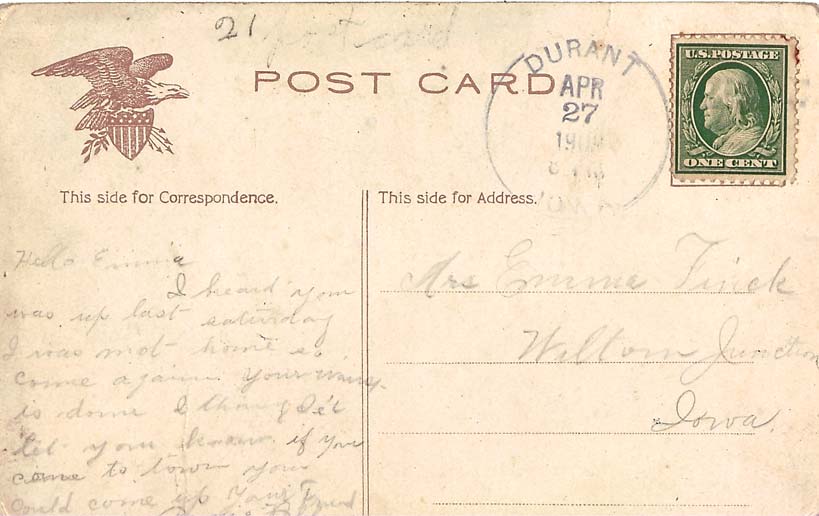 21 post card
POST CARD
DURANT
APR
27
U.S. POSTAGE
ONE CENT
This side for Correspondence.
This side for Address.
Hello Emma
I heard you
was up last saturday
I was not home so
come again. your
is done I
let you know if you
come to town you
could come up Your Friend
Mrs Emma Finck
Wilton Junction
Iowa.